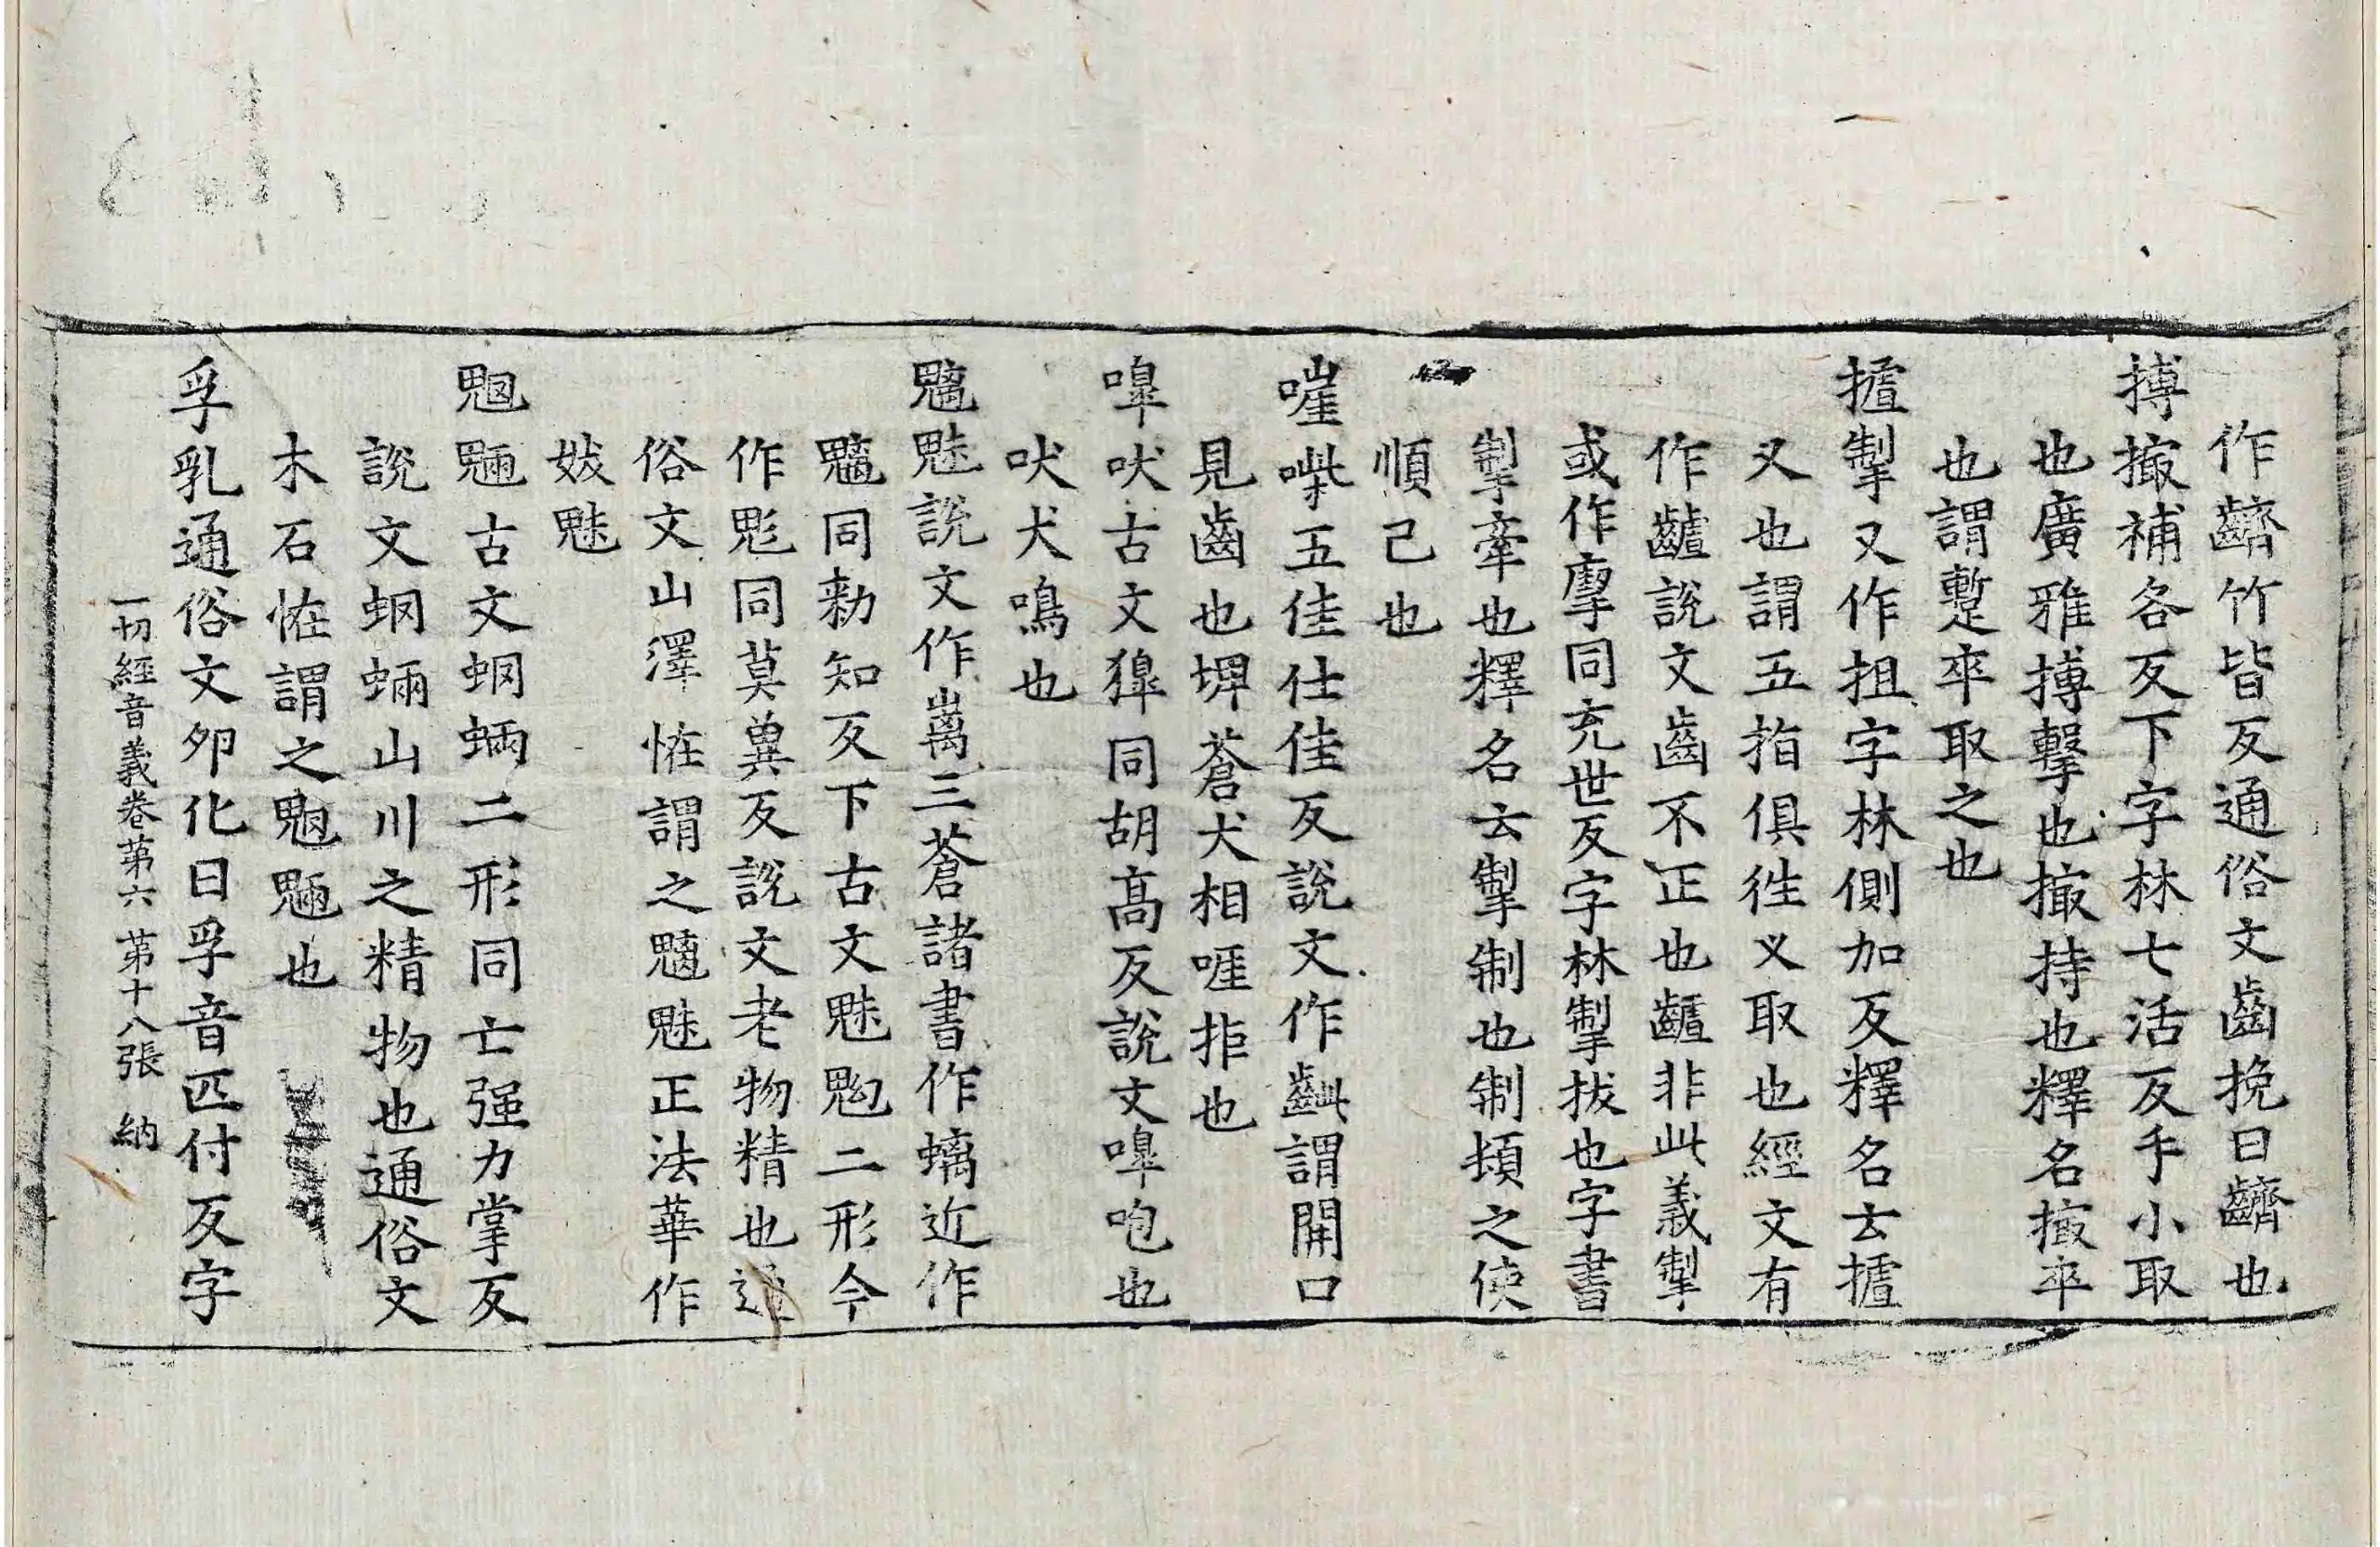 作齰竹皆反通俗文齒挽曰齰也
搏撮補各反下字林七活反手小取
也廣雅搏擊也撮持也釋名撮卒
也謂蹔卒取之也
摣掣又作抯字林側加反釋名云摣
叉也謂五指俱往叉取也經文有
作齇說文齒不正也齇非此義掣
或作㨖同充世反字林掣拔也字書
掣牽也釋名云掣制也制頓之使
順己也
嘊喍五佳仕佳反說文作齜謂開口
見齒也埤蒼犬相啀拒也
嘷吠古文獋同胡高反說文嘷咆也
吠犬鳴也
魑魅說文作离三蒼諸書作螭近作
魑同勑知反下古文魅鬽二形今
作彪同莫兾反說文老物精也通
俗文山澤恠謂之魑魅正法華作
妭魅
魍魎古文蛧蜽二形同亡强力掌反
說文蛧蜽山川之精物也通俗文
木石恠謂之魍魎也
孚乳通俗文卵化曰孚音匹付反字
一切經音義卷第六 第十八張 納